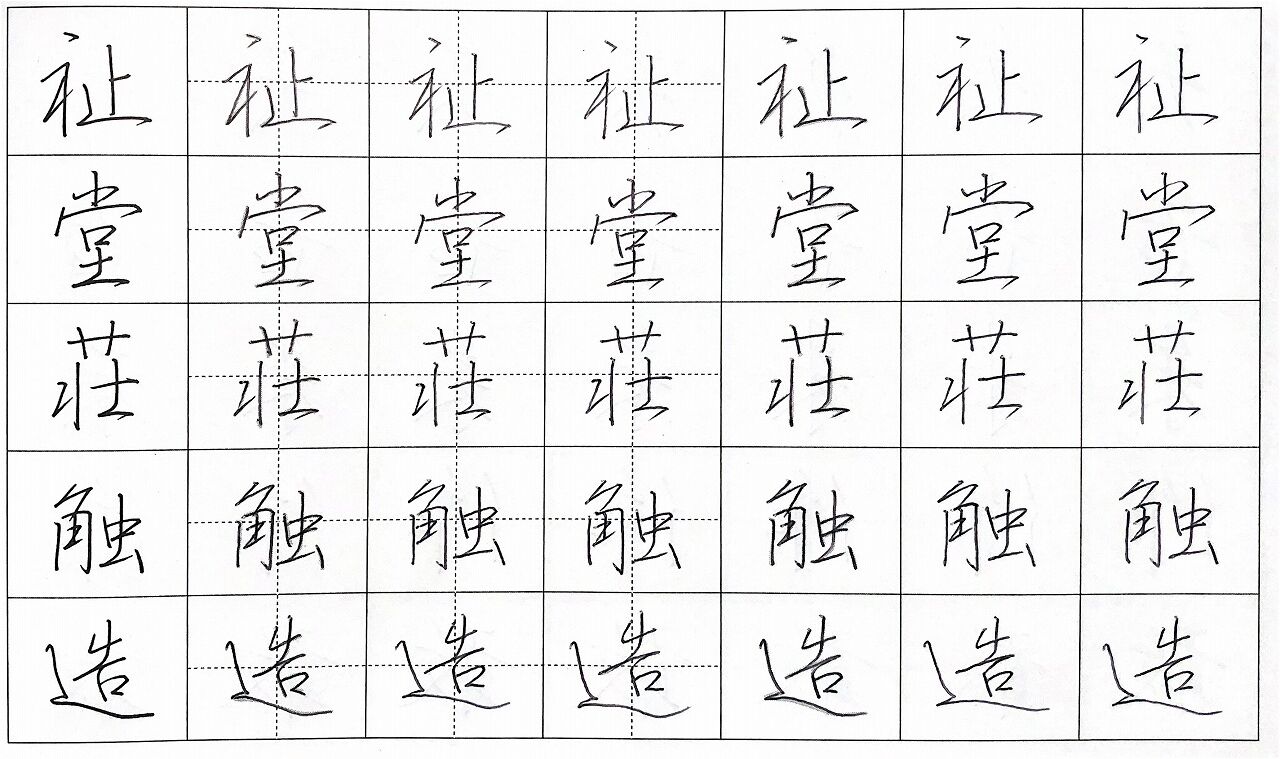 祉祉祉祉祉祉祉
堂堂堂堂堂堂堂
荘荘荘荘荘荘荘
触触触触触触触
造造造造造造造